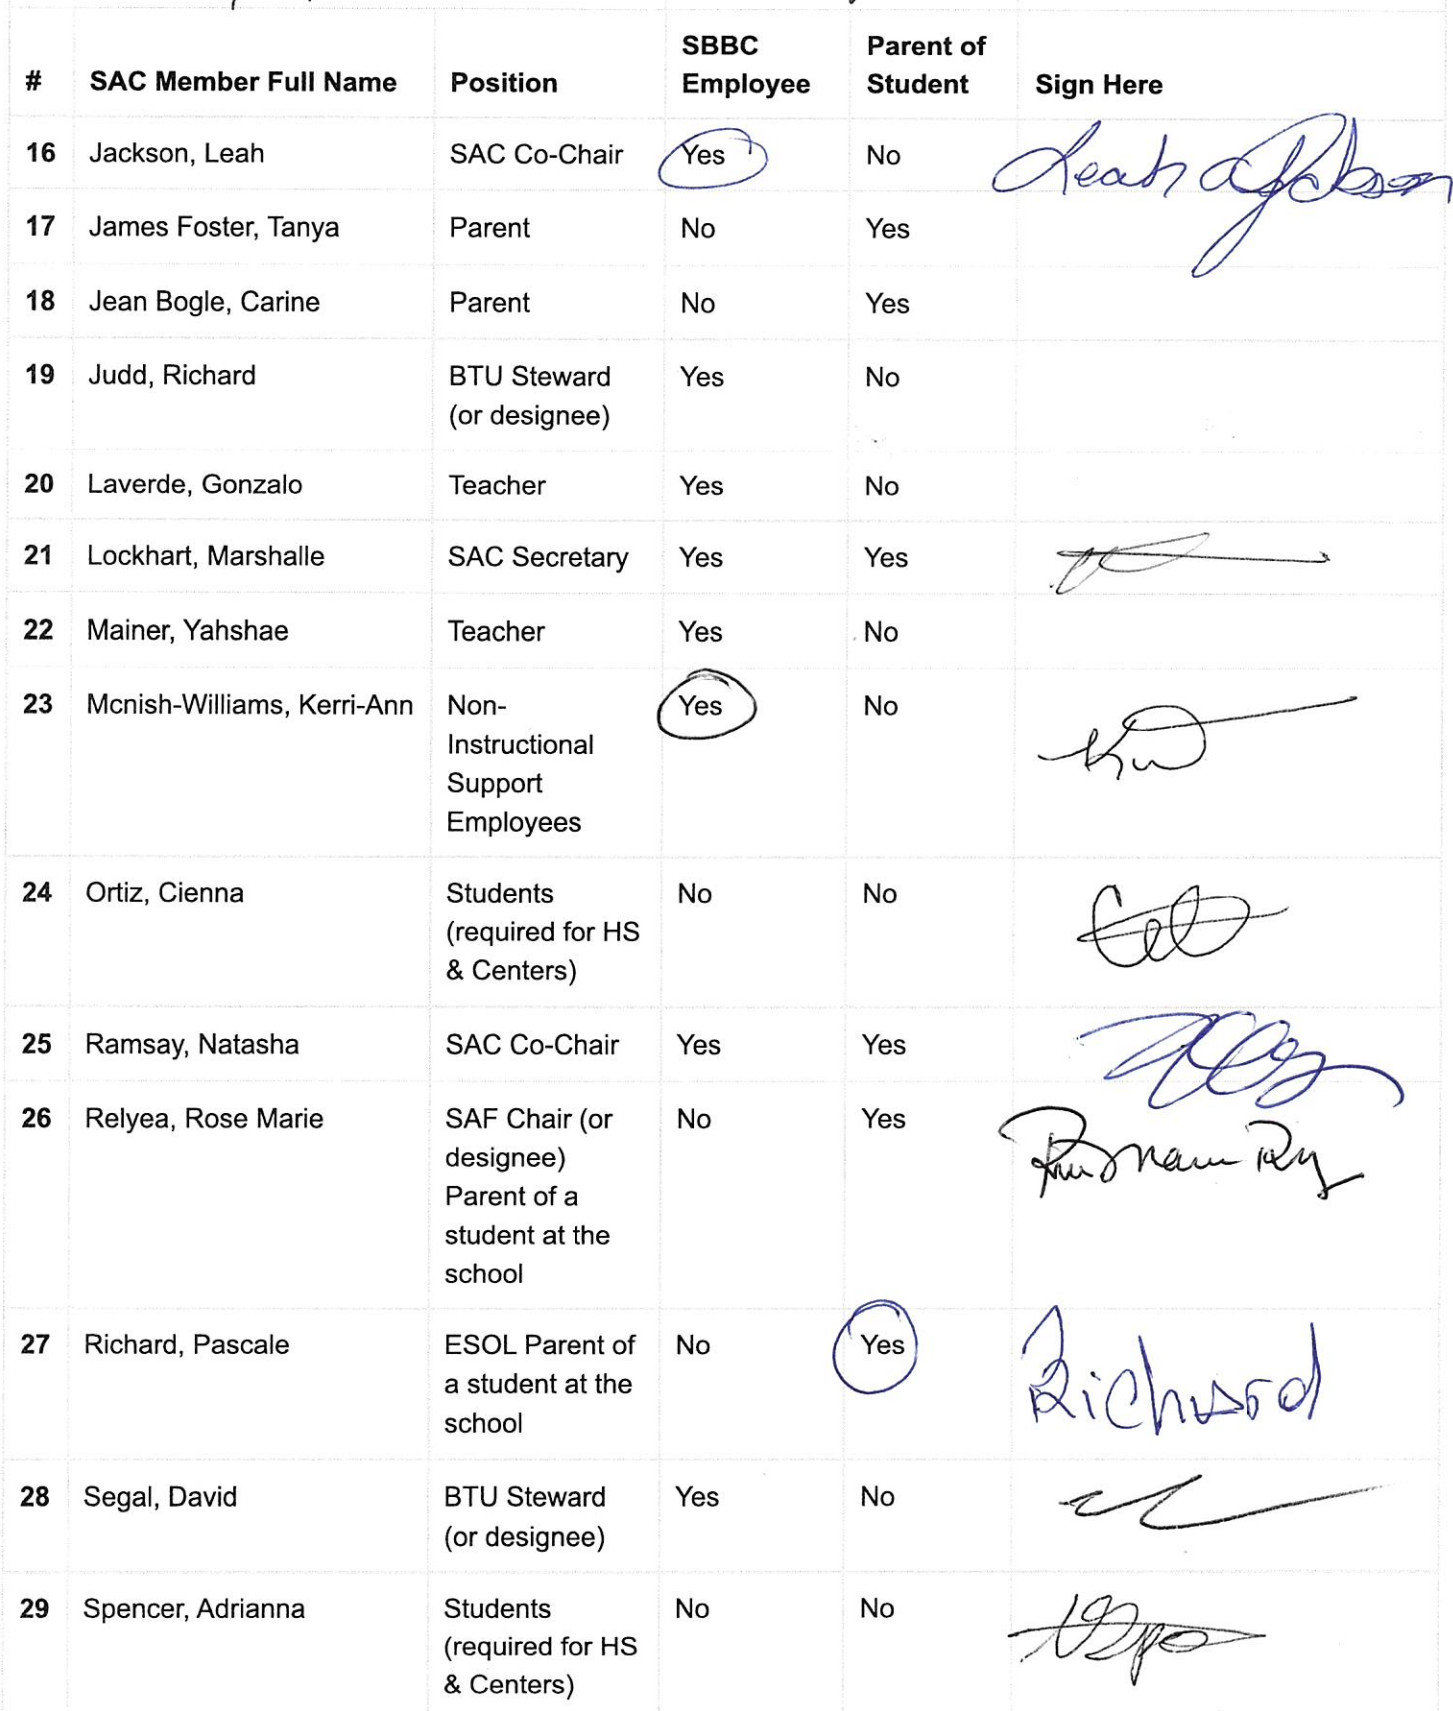 # SAC Member Full Name Position SBBC Employee Parent of Student Sign Here
16 Jackson, Leah SAC Co-Chair Yes No Leah a Jackson
17 James Foster, Tanya Parent No Yes
18 Jean Bogle, Carine Parent No Yes
19 Judd, Richard BTU Steward Yes No
(or designee)
20 Laverde, Gonzalo Teacher Yes No
21 Lockhart, Marshalle SAC Secretary Yes Yes
22 Mainer, Yahshae Teacher Yes No
23 Mcnish-Williams, Kerri-Ann Non- Yes No
Instructional
Support
Employees
24 Ortiz, Cienna Students No No
(required for HS
& Centers)
25 Ramsay, Natasha SAC Co-Chair Yes Yes
26 Relyea, Rose Marie SAF Chair (or No Yes
designee)
Parent of a
student at the
school
27 Richard, Pascale ESOL Parent of No Yes Richard
a student at the
school
28 Segal, David BTU Steward Yes No
(or designee)
29 Spencer, Adrianna Students No No
(required for HS
& Centers)